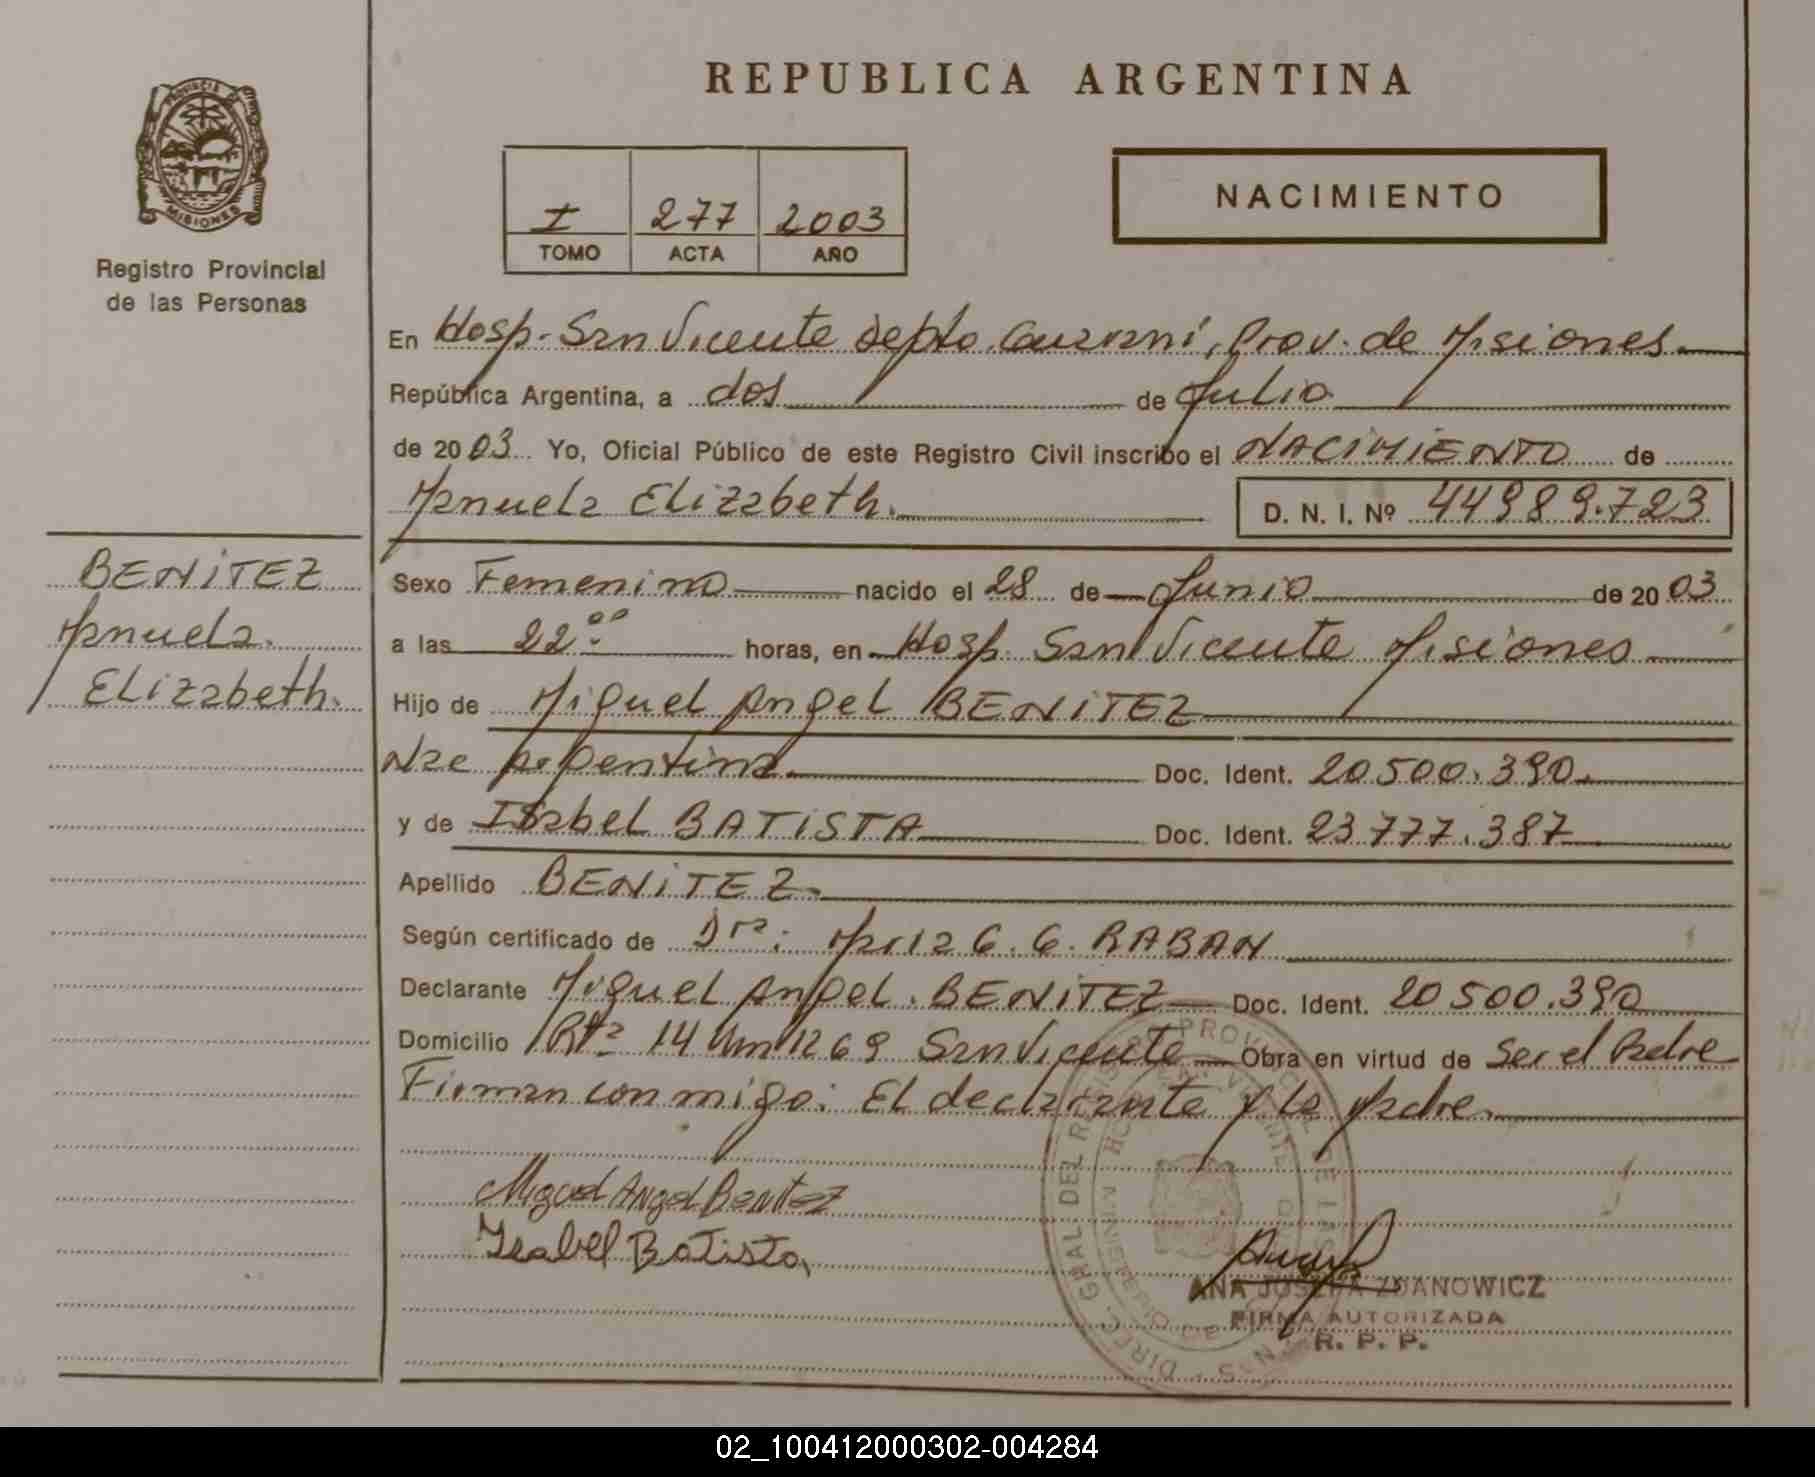 REPUBLICA ARGENTINA
PROVINCIA DE
MISIONES
Registro Provincial
de las Personas
I 277 2003
TOMO ACTA AÑO
NACIMIENTO
En Hosp. San Vicente depto. Guaraní, Prov. de Misiones.
República Argentina, a dos de Julio
de 2003 Yo, Oficial Público de este Registro Civil inscribo el NACIMIENTO de
Manuela Elizabeth. D. N. I. Nº 44989.723
BENITEZ
Manuela.
Elizabeth.
Sexo Femenino nacido el 28 de Junio de 2003
a las 22:00 horas, en Hosp. San Vicente Misiones
Hijo de Miguel Angel BENITEZ
Nac Argentina. Doc. Ident. 20500.390.
y de Isabel BATISTA Doc. Ident. 23777.387
Apellido BENITEZ.
Según certificado de Dra: Maria G. G. RABAN
Declarante Miguel Angel. BENITEZ Doc. Ident. 20500.390
Domicilio Rta 14 Km 1269 San Vicente Obra en virtud de Ser el Padre
Firman conmigo: El declarante y la Madre.
Miguel Angel Benitez
Isabel Batista
ANA JOSEFA ZDANOWICZ
FIRMA AUTORIZADA
R. P. P.
02_100412000302-004284